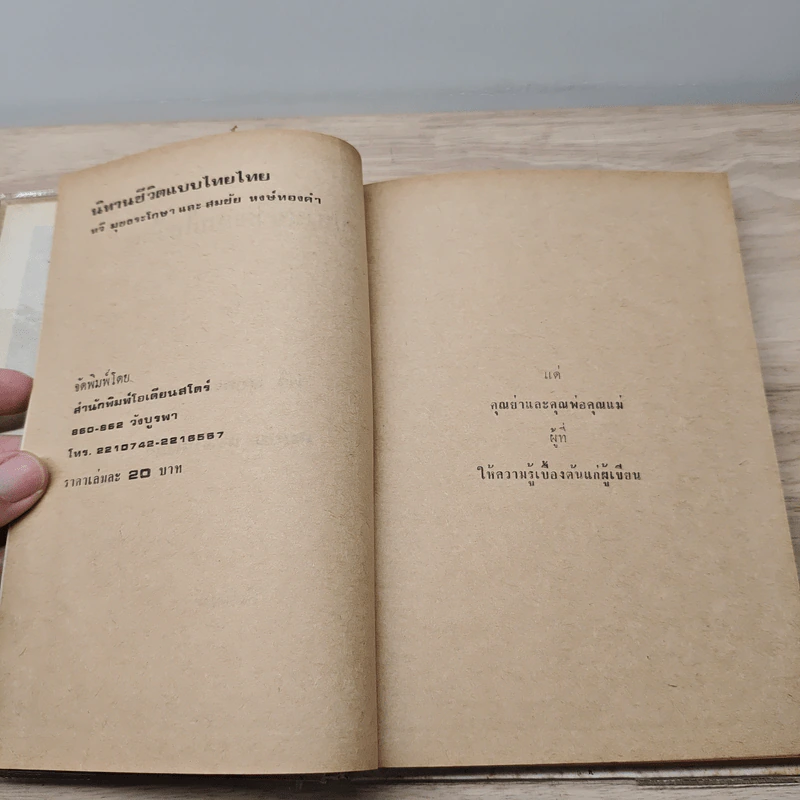 นิทานชีวิตแบบไทยไทย
ทรี มุขธระโกษา และ สมชัย หงษ์ทองคำ
จัดพิมพ์โดย
สำนักพิมพ์โอเดียนสโตร์
860-862 วังบูรพา
โทร. 2210742-2216567
ราคาเล่มละ 20 บาท
แด่
คุณย่าและคุณพ่อคุณแม่
ผู้ที่
ให้ความรู้เบื้องต้นแก่ผู้เขียน